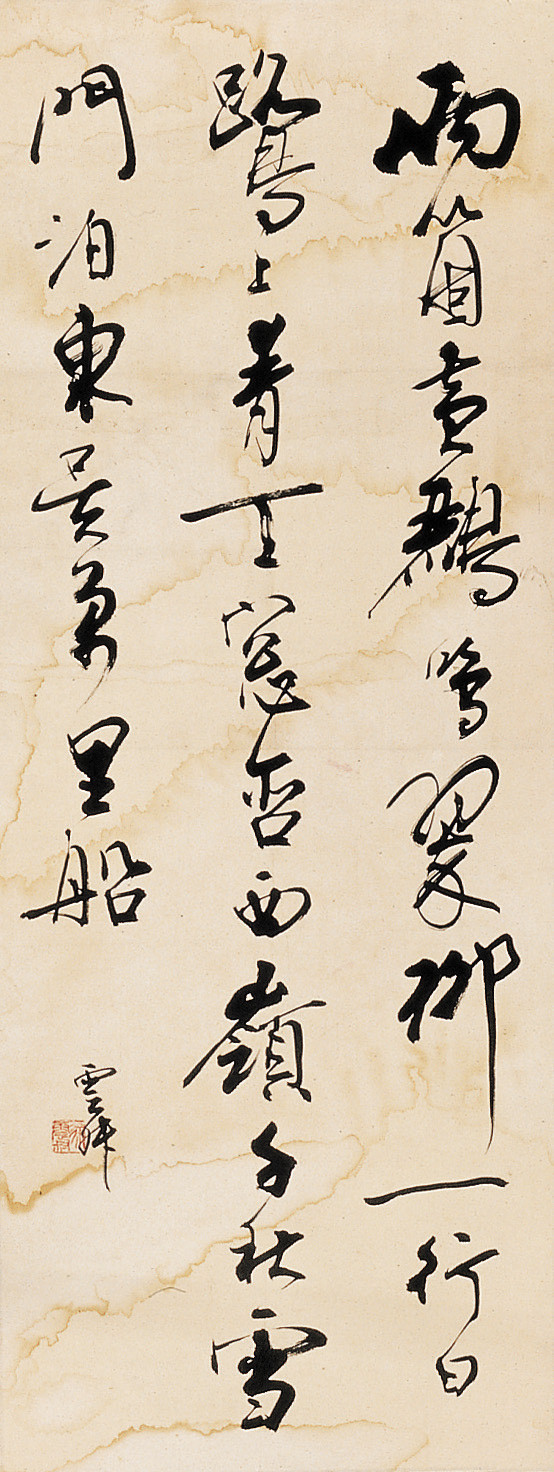 兩箇黃鸝鳴翠柳一行白
鷺上青天窓含西嶺千秋雪
門泊東吳萬里船
雲